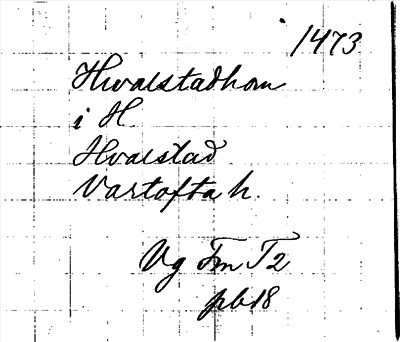 1473
Hwalstadhom
i H.
Hvalstad
Vartofta h.
Vg Fm T2
pb18